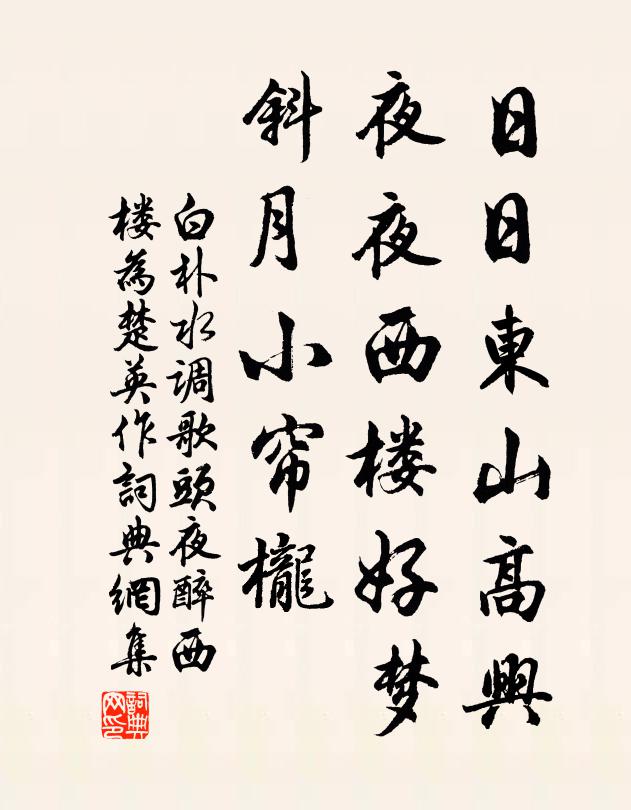 日日東山高興
夜夜西楼好梦
斜月小帘櫳
白朴水调歌頭夜醉西
楼為楚英作詞典網集
詞典
网印